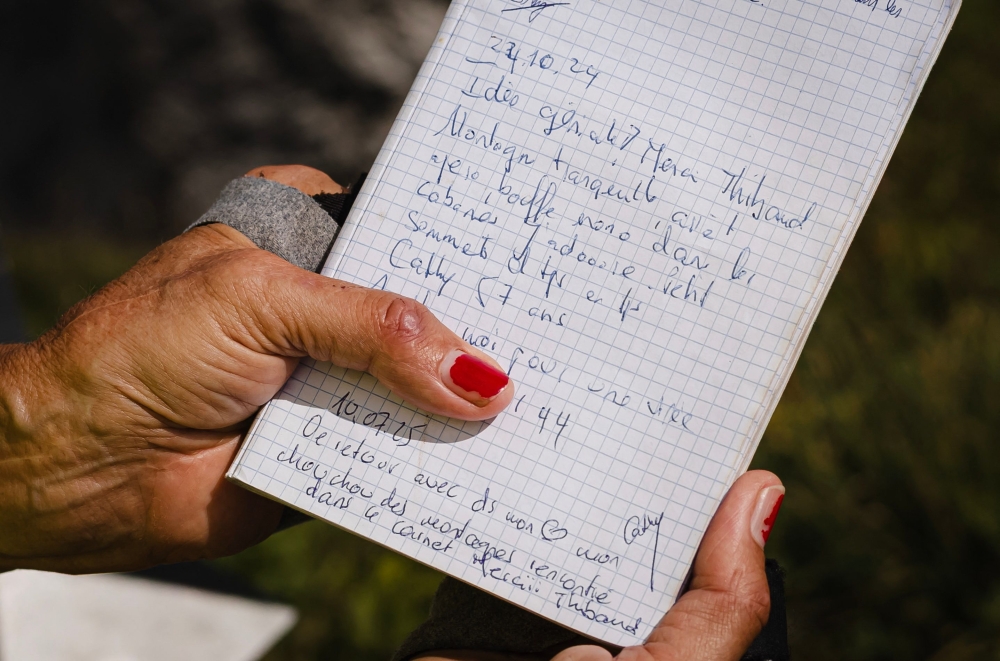 24.10.24
Idée géniale Merci Thibaud
Montagn tranquille
apero bouffe mono dan les
Cabanes j'adoooie
Sommets et tps en tps
Cathy 57 ans
moi pour une virée
44
10.07.25
De retour avec ds mon ♡ mon
chouchou des montagnes rencontré
dans le carnet Merciii Thibaud
Cathy